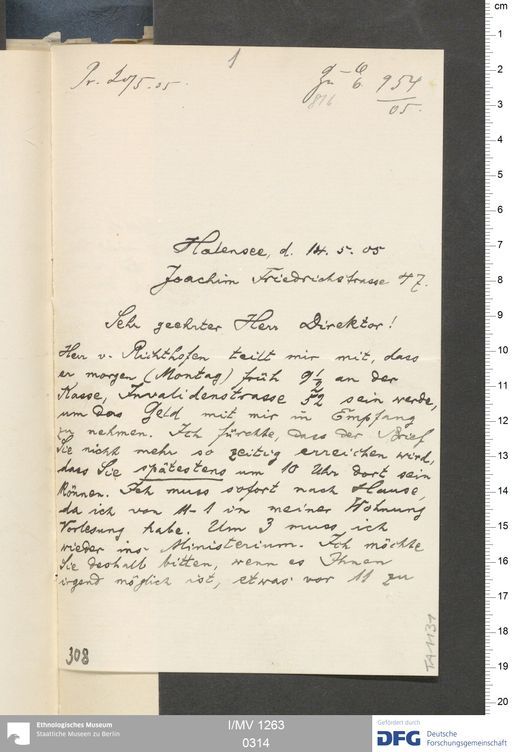 1
Pr. 20/5. 05.
954
05.
816
Halensee, d. 14. 5. 05
Joachim Friedrichstrasse 47.
Sehr geehrter Herr Direktor!
Herr v. Richthofen teilt mir mit, dass
er morgen (Montag) früh 9 1/2 an der
Kasse, Invalidenstrasse 52 sein werde,
um das Geld mit mir in Empfang
zu nehmen. Ich fürchte, dass der Brief
Sie nicht mehr so zeitig erreichen wird,
dass Sie spätestens um 10 Uhr dort sein
können. Ich muss sofort nach Hause,
da ich von 11-1 in meiner Wohnung
Vorlesung habe. Um 3 muss ich
wieder ins Ministerium. Ich möchte
Sie deshalb bitten, wenn es Ihnen
irgend möglich ist, etwas vor 11 zu
308
cm
1
2
3
4
5
6
7
8
9
10
11
12
13
14
15
16
17
18
19
20
Ethnologisches Museum
Staatliche Museen zu Berlin
I/MV 1263
0314
Gefördert durch
DFG Deutsche
Forschungsgemeinschaft